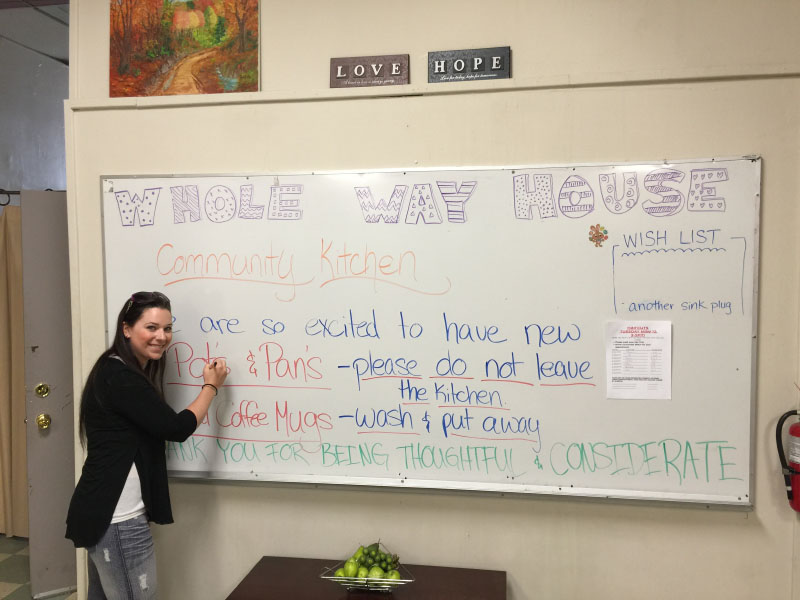 LOVE
HOPE
WHOLE WAY HOUSE
WISH LIST
· another sink plug
Community Kitchen
are so excited to have new
Pot's & Pan's - please do not leave
the Kitchen.
Coffee Mugs - wash & put away
YOU FOR BEING THOUGHTFUL & CONSIDERATE